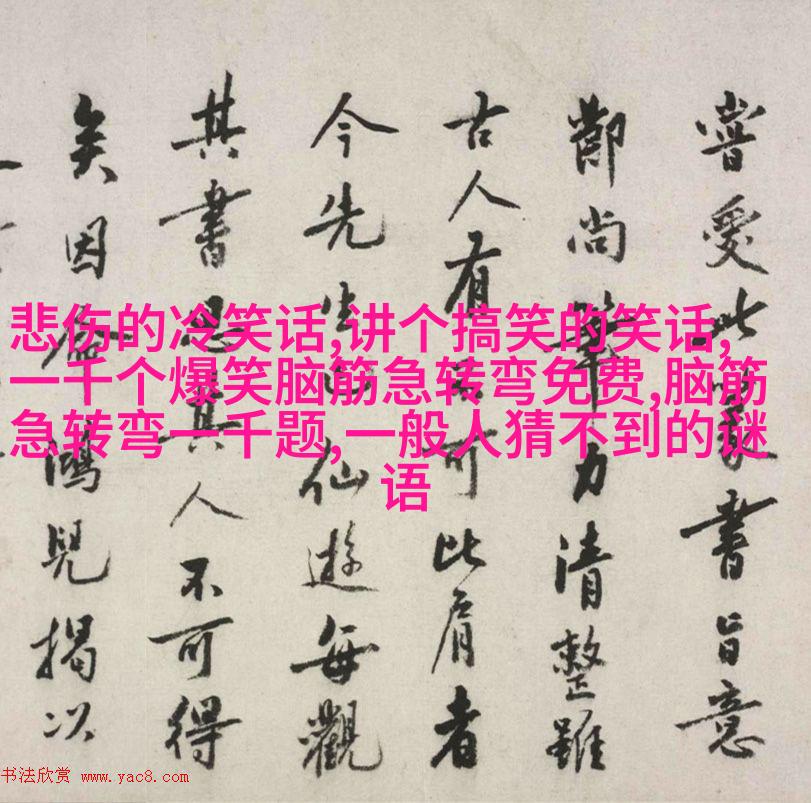 悲伤的冷笑话,讲个搞笑的笑话,
一千个爆笑脑筋急转弯免费,脑筋
急转弯一千题,一般人猜不到的谜
语
嘗受此書旨意
尚筆力清整雖
古人有可比肩者
今先生仙遊每觀
其書思其人不可得
矣因鴻兒揭以
书法欣赏 www.yac8.com